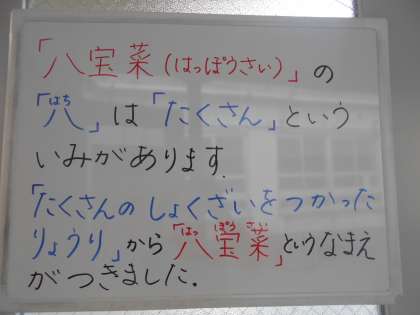 「八宝菜(はっぽうさい)」の
「八」は「たくさん」という
いみがあります.
「たくさんのしょくざいをつかった
りょうり」から「八宝菜」というなまえ
がつきました.
はち
はっ ぽう さい